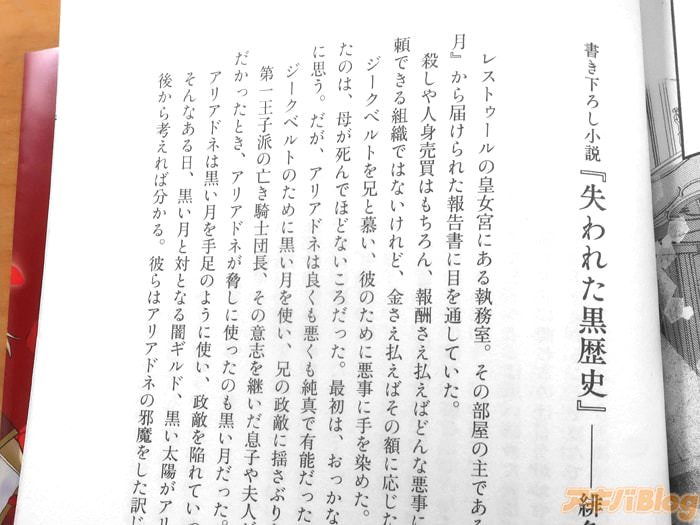 書き下ろし小説『失われた黒歴史』――緋色
レストゥールの皇女宮にある執務室。その部屋の主である
月』から届けられた報告書に目を通していた。
殺しや人身売買はもちろん、報酬さえ払えばどんな悪事に
頼できる組織ではないけれど、金さえ払えばその額に応じた
ジークベルトを兄と慕い、彼のために悪事に手を染めた。
たのは、母が死んでほどないころだった。最初は、おっかな
に思う。だが、アリアドネは良くも悪くも純真で有能だった
ジークベルトのために黒い月を使い、兄の政敵に揺さぶり
第一王子派の亡き騎士団長、その意志を継いだ息子や夫人が
だかったとき、アリアドネが脅しに使ったのも黒い月だった。
アリアドネは黒い月を手足のように使い、政敵を陥れていっ
そんなある日、黒い月と対となる闇ギルド、黒い太陽がアリ
後から考えれば分かる。彼らはアリアドネの邪魔をした訳じ
アキバBlog